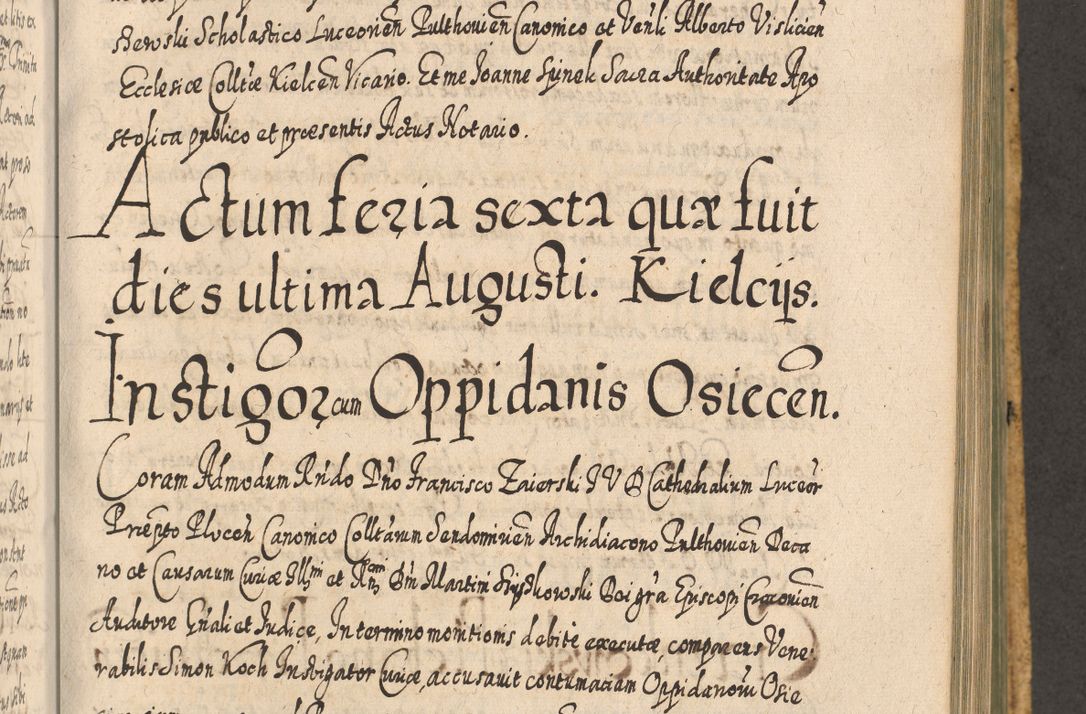 stewski Scholastico Luceorien̄ Pulthovien̄ Canonico et Ven̄li Alberto Vislicien̄
Ecclesiæ Collt̄æ Kielcen̄ Vicario. Et me Joanne Synek Sacra Authoritate Apo
stolica publico et præsentis Actus Notario.
Actum feria sexta quæ fuit
dies ultima Augusti. Kielcijs.
Instigor̄ cum Oppidanis Osiecen̄.
Coram Admodum Rn̄do Dn̄o Francisco Zaierski JVD Cathedralium Luceor̄
Præp̄to Plocen̄ Canonico Collt̄arum Sendomirien̄ Archidiacono Pulthovien̄ Deca
no et Causarum Curiæ Illmi et Rn̄mi Dn̄i Martini Szyszkowski Dei gr̄a Episcopi Cracovien̄
Auditore Gn̄ali et Judice, In termino monitionis debite executæ, comparens Vene
rabilis Simon Koch Instigator Curiæ, accusavit contumaciam Oppidanorū Osie